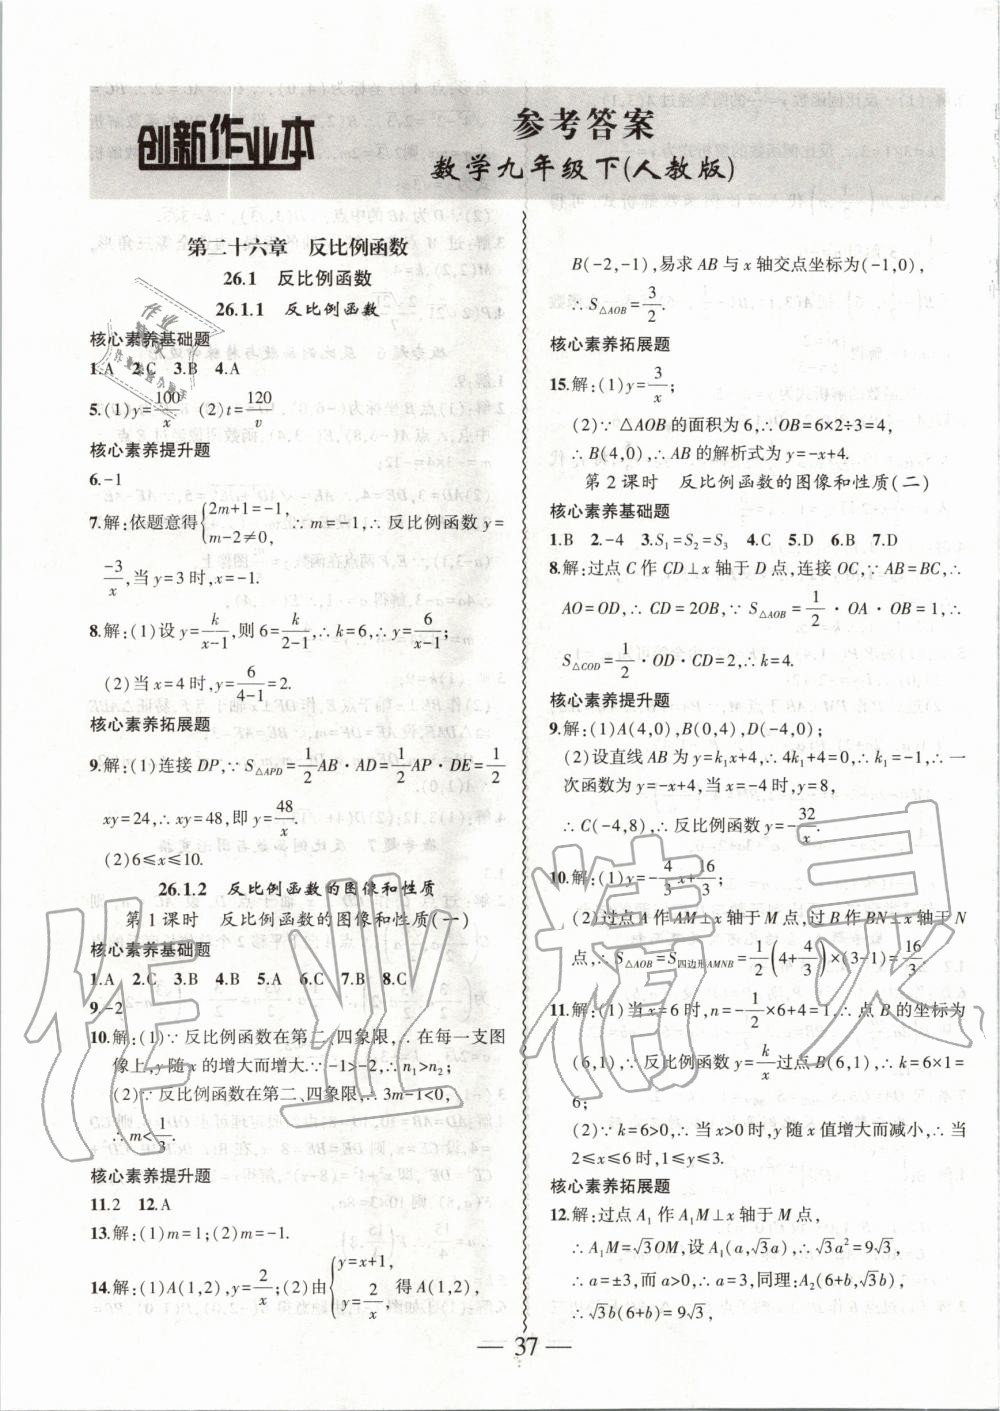 创新作业本
参考答案
数学九年级下(人教版)
第二十六章 反比例函数
26.1 反比例函数
26.1.1 反比例函数
核心素养基础题
1.A 2.C 3.B 4.A
5.(1)y=100/x (2)t=120/v
核心素养提升题
6.-1
7.解:依题意得{2m+1=-1, m-2≠0, ∴m=-1,∴反比例函数y=
-3/x,当y=3时,x=-1.
8.解:(1)设y=k/(x-1),则6=k/(2-1),∴k=6,∴y=6/(x-1);
(2)当x=4时,y=6/(4-1)=2.
核心素养拓展题
9.解:(1)连接DP,∵S△APD=1/2 AB·AD=1/2 AP·DE=1/2
xy=24,∴xy=48,即y=48/x.
(2)6≤x≤10.
26.1.2 反比例函数的图像和性质
第1课时 反比例函数的图像和性质(一)
核心素养基础题
1.A 2.C 3.B 4.B 5.A 6.C 7.B 8.C
9.-2
10.解:(1)∵反比例函数在第二、四象限,∴在每一支图
像上,y随x的增大而增大∵-1>-2,∴n₁>n₂;
(2)∵反比例函数在第二、四象限,∴3m-1<0,
∴m<1/3.
核心素养提升题
11.2 12.A
13.解:(1)m=1;(2)m=1.
14.解:(1)A(1,2),y=2/x;(2)由{y=x+1, y=2/x, 得A(1,2),
B(-2,-1),易求AB与x轴交点坐标为(-1,0),
∴S△AOB=3/2.
核心素养拓展题
15.解:(1)y=3/x;
(2)∵△AOB的面积为6,∴OB=6×2÷3=4,
∴B(4,0),∴AB的解析式为y=-x+4.
第2课时 反比例函数的图像和性质(二)
核心素养基础题
1.B 2.-4 3.S₁=S₂=S₃ 4.C 5.D 6.B 7.D
8.解:过点C作CD⊥x轴于D点,连接OC,∵AB=BC,∴
AO=OD,∴CD=2OB,∵S△AOB=1/2·OA·OB=1,∴
S△COD=1/2·OD·CD=2,∴k=4.
核心素养提升题
9.解:(1)A(4,0),B(0,4),D(-4,0);
(2)设直线AB为y=k₁x+4,∴4k₁+4=0,∴k₁=-1,∴一
次函数为y=-x+4,当x=-4时,y=8,
∴C(-4,8),∴反比例函数y=-32/x.
10.解:(1)y=-4/3 x+16/3;
(2)过点A作AM⊥x轴于M点,过B作BN⊥x轴于N
点,∴S△AOB=S四边形AMNB=1/2(4+4/3)×(3-1)=16/3.
11.解:(1)当x=6时,n=-1/2×6+4=1.∴点B的坐标为
(6,1),∵反比例函数y=k/x过点B(6,1),∴k=6×1=
6;
(2)∵k=6>0,∴当x>0时,y随x值增大而减小,∴当
2≤x≤6时,1≤y≤3.
核心素养拓展题
12.解:过点A₁作A₁M⊥x轴于M点,
∴A₁M=√3OM,设A₁(a,√3a),∴√3a²=9√3,
∴a=±3,而a>0,∴a=3,同理:A₂(6+b,√3b)
∴√3b(6+b)=9√3,
37
作业精灵